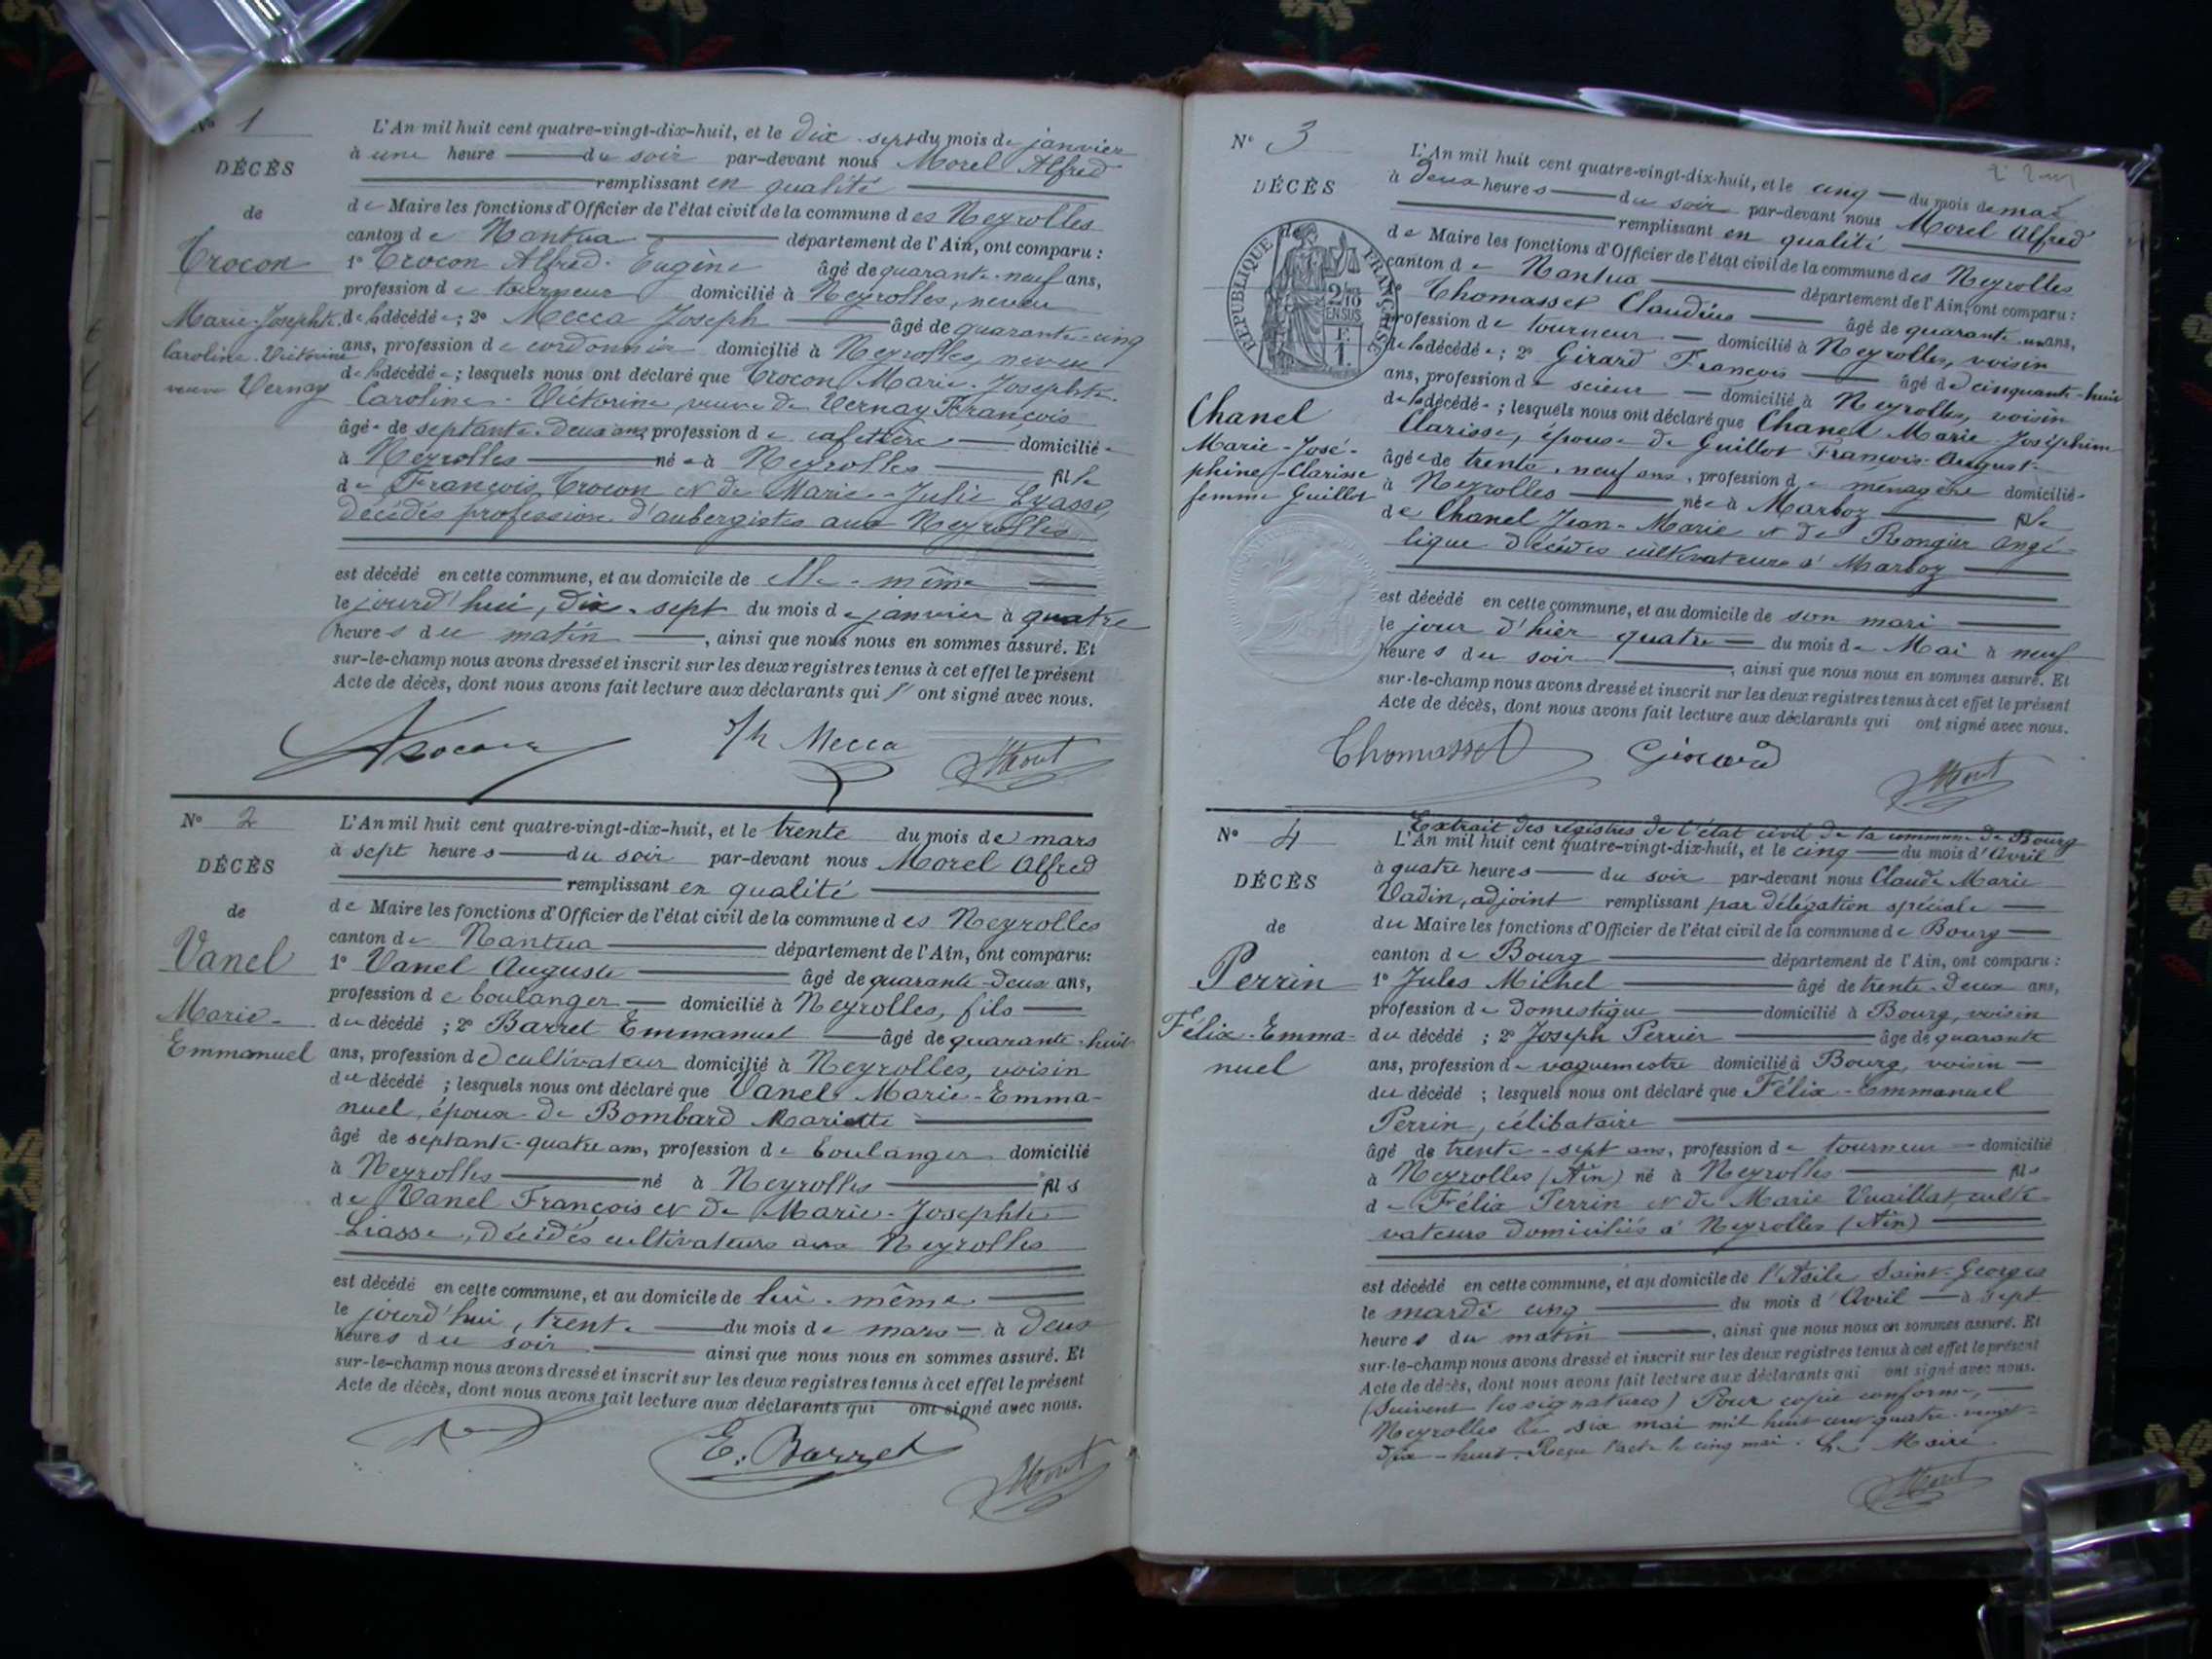 No 1
DÉCÈS
de
Crocon
Marie-Josephte
Caroline-Victorine
veuve Vernay
L'An mil huit cent quatre-vingt-dix-huit, et le dix-sept du mois de janvier
à une heure du soir par-devant nous Morel Alfred
remplissant en qualité
de Maire les fonctions d'Officier de l'état civil de la commune des Neyrolles
canton de Nantua département de l'Ain, ont comparu :
1° Crocon Alfred-Eugène âgé de quarante-neuf ans,
profession de tourneur domicilié à Neyrolles, neveu
de la décédée ; 2° Mecca Joseph âgé de quarante-cinq
ans, profession de cordonnier domicilié à Neyrolles, neveu
de la décédée ; lesquels nous ont déclaré que Crocon Marie-Josephte-
Caroline-Victorine, veuve de Vernay François
âgée de septante-deux ans, profession de cafetière domiciliée
à Neyrolles née à Neyrolles fille
de François Crocon et de Marie-Julie Lyasse,
décédés profession d'aubergistes aux Neyrolles
est décédé en cette commune, et au domicile de elle-même
le jourd'hui, dix-sept du mois de janvier à quatre
heures du matin, ainsi que nous nous en sommes assuré. Et
sur-le-champ nous avons dressé et inscrit sur les deux registres tenus à cet effet le présent
Acte de décès, dont nous avons fait lecture aux déclarants qui l' ont signé avec nous.
Mecca
N° 2
DÉCÈS
de
Vanel
Marie-
Emmanuel
L'An mil huit cent quatre-vingt-dix-huit, et le trente du mois de mars
à sept heures du soir par-devant nous Morel Alfred
remplissant en qualité
de Maire les fonctions d'Officier de l'état civil de la commune des Neyrolles
canton de Nantua département de l'Ain, ont comparu:
1° Vanel Auguste âgé de quarante-deux ans,
profession de boulanger domicilié à Neyrolles, fils
du décédé ; 2° Barret Emmanuel âgé de quarante-huit
ans, profession de cultivateur domicilié à Neyrolles, voisin
du décédé ; lesquels nous ont déclaré que Vanel Marie-Emma-
nuel, époux de Bombard Mariette
âgé de septante-quatre ans, profession de boulanger domicilié
à Neyrolles né à Neyrolles fils
de Vanel François et de Marie-Josephte
Liasse, décédés cultivateurs aux Neyrolles
est décédé en cette commune, et au domicile de lui-même
le jourd'hui, trente du mois de mars à deux
heures du soir ainsi que nous nous en sommes assuré. Et
sur-le-champ nous avons dressé et inscrit sur les deux registres tenus à cet effet le présent
Acte de décès, dont nous avons fait lecture aux déclarants qui ont signé avec nous.
E. Barret
N° 3
DÉCÈS
de
RÉPUBLIQUE FRANÇAISE
2/10
EN SUS
Chanel
Marie-José-
phine-Clarisse
femme Guillot
L'An mil huit cent quatre-vingt-dix-huit, et le cinq du mois de mai
à deux heures du soir par-devant nous Morel Alfred
remplissant en qualité
de Maire les fonctions d'Officier de l'état civil de la commune des Neyrolles
canton de Nantua département de l'Ain, ont comparu :
Thomasset Claudius âgé de quarante-un ans,
profession de tourneur domicilié à Neyrolles, voisin
de la décédée ; 2° Girard François âgé de cinquante-huit
ans, profession de scieur domicilié à Neyrolles, voisin
de la décédée ; lesquels nous ont déclaré que Chanel Marie-Joséphine
Clarisse, épouse de Guillot François-Auguste
âgée de trente-neuf ans, profession de ménagère domiciliée
à Neyrolles née à Marboz fille
de Chanel Jean-Marie et de Rongier Angé-
lique décédés cultivateurs à Marboz
est décédé en cette commune, et au domicile de son mari
le jour d'hier quatre du mois de Mai à neuf
heures du soir, ainsi que nous nous en sommes assuré. Et
sur-le-champ nous avons dressé et inscrit sur les deux registres tenus à cet effet le présent
Acte de décès, dont nous avons fait lecture aux déclarants qui ont signé avec nous.
Thomasset Girard
N° 4
DÉCÈS
de
Perrin
Félix-Emma-
nuel
Extrait des registres de l'état civil de la commune de Bourg
L'An mil huit cent quatre-vingt-dix-huit, et le cinq du mois d'Avril
à quatre heures du soir par-devant nous Claude Marie
Vadin, adjoint remplissant par délégation spéciale
du Maire les fonctions d'Officier de l'état civil de la commune de Bourg
canton de Bourg département de l'Ain, ont comparu :
1° Jules Michel âgé de trente-deux ans,
profession de domestique domicilié à Bourg, voisin
du décédé ; 2° Joseph Perrier âgé de quarante
ans, profession de vaguemestre domicilié à Bourg, voisin
du décédé ; lesquels nous ont déclaré que Félix-Emmanuel
Perrin, célibataire
âgé de trente-sept ans, profession de tourneur domicilié
à Neyrolles (Ain) né à Neyrolles fils
de Félix Perrin et de Marie Vuaillat, culti-
vateurs domiciliés à Neyrolles (Ain)
est décédé en cette commune, et au domicile de l'Asile Saint-Georges
le mardi cinq du mois d'Avril à sept
heures du matin, ainsi que nous nous en sommes assuré. Et
sur-le-champ nous avons dressé et inscrit sur les deux registres tenus à cet effet le présent
Acte de décès, dont nous avons fait lecture aux déclarants qui ont signé avec nous.
(Suivent les signatures) Pour copie conforme,
Neyrolles le six mai mil huit cent quatre-vingt
dix-huit. Reçu l'acte le cinq mai. Le Maire